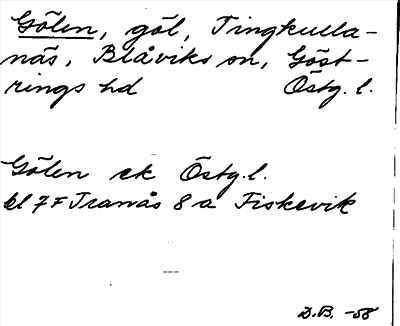 Gölen, göl, Tingkulla-
näs, Blåviks sn, Göst-
rings hd Östg. l.
Gölen ek Östg. l.
bl 7F Tranås 8 a Fiskevik
D.B. -58